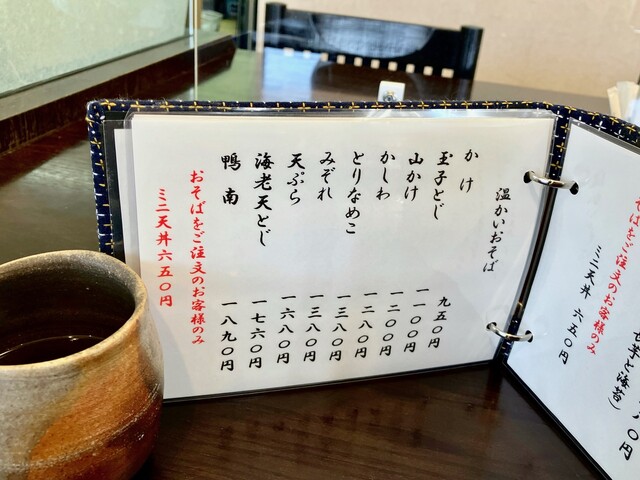 温かいおそば
かけ 九五〇円
玉子とじ 一一〇〇円
山かけ 一二〇〇円
かしわ 一二八〇円
とりなめこ 一三八〇円
みぞれ 一三八〇円
天ぷら 一六八〇円
海老天とじ 一七六〇円
鴨南 一八九〇円
おそばをご注文のお客様のみ
ミニ天丼六五〇円
〇円
と海苔)
そばをご注文のお客様のみ
ミニ天丼 六五〇円